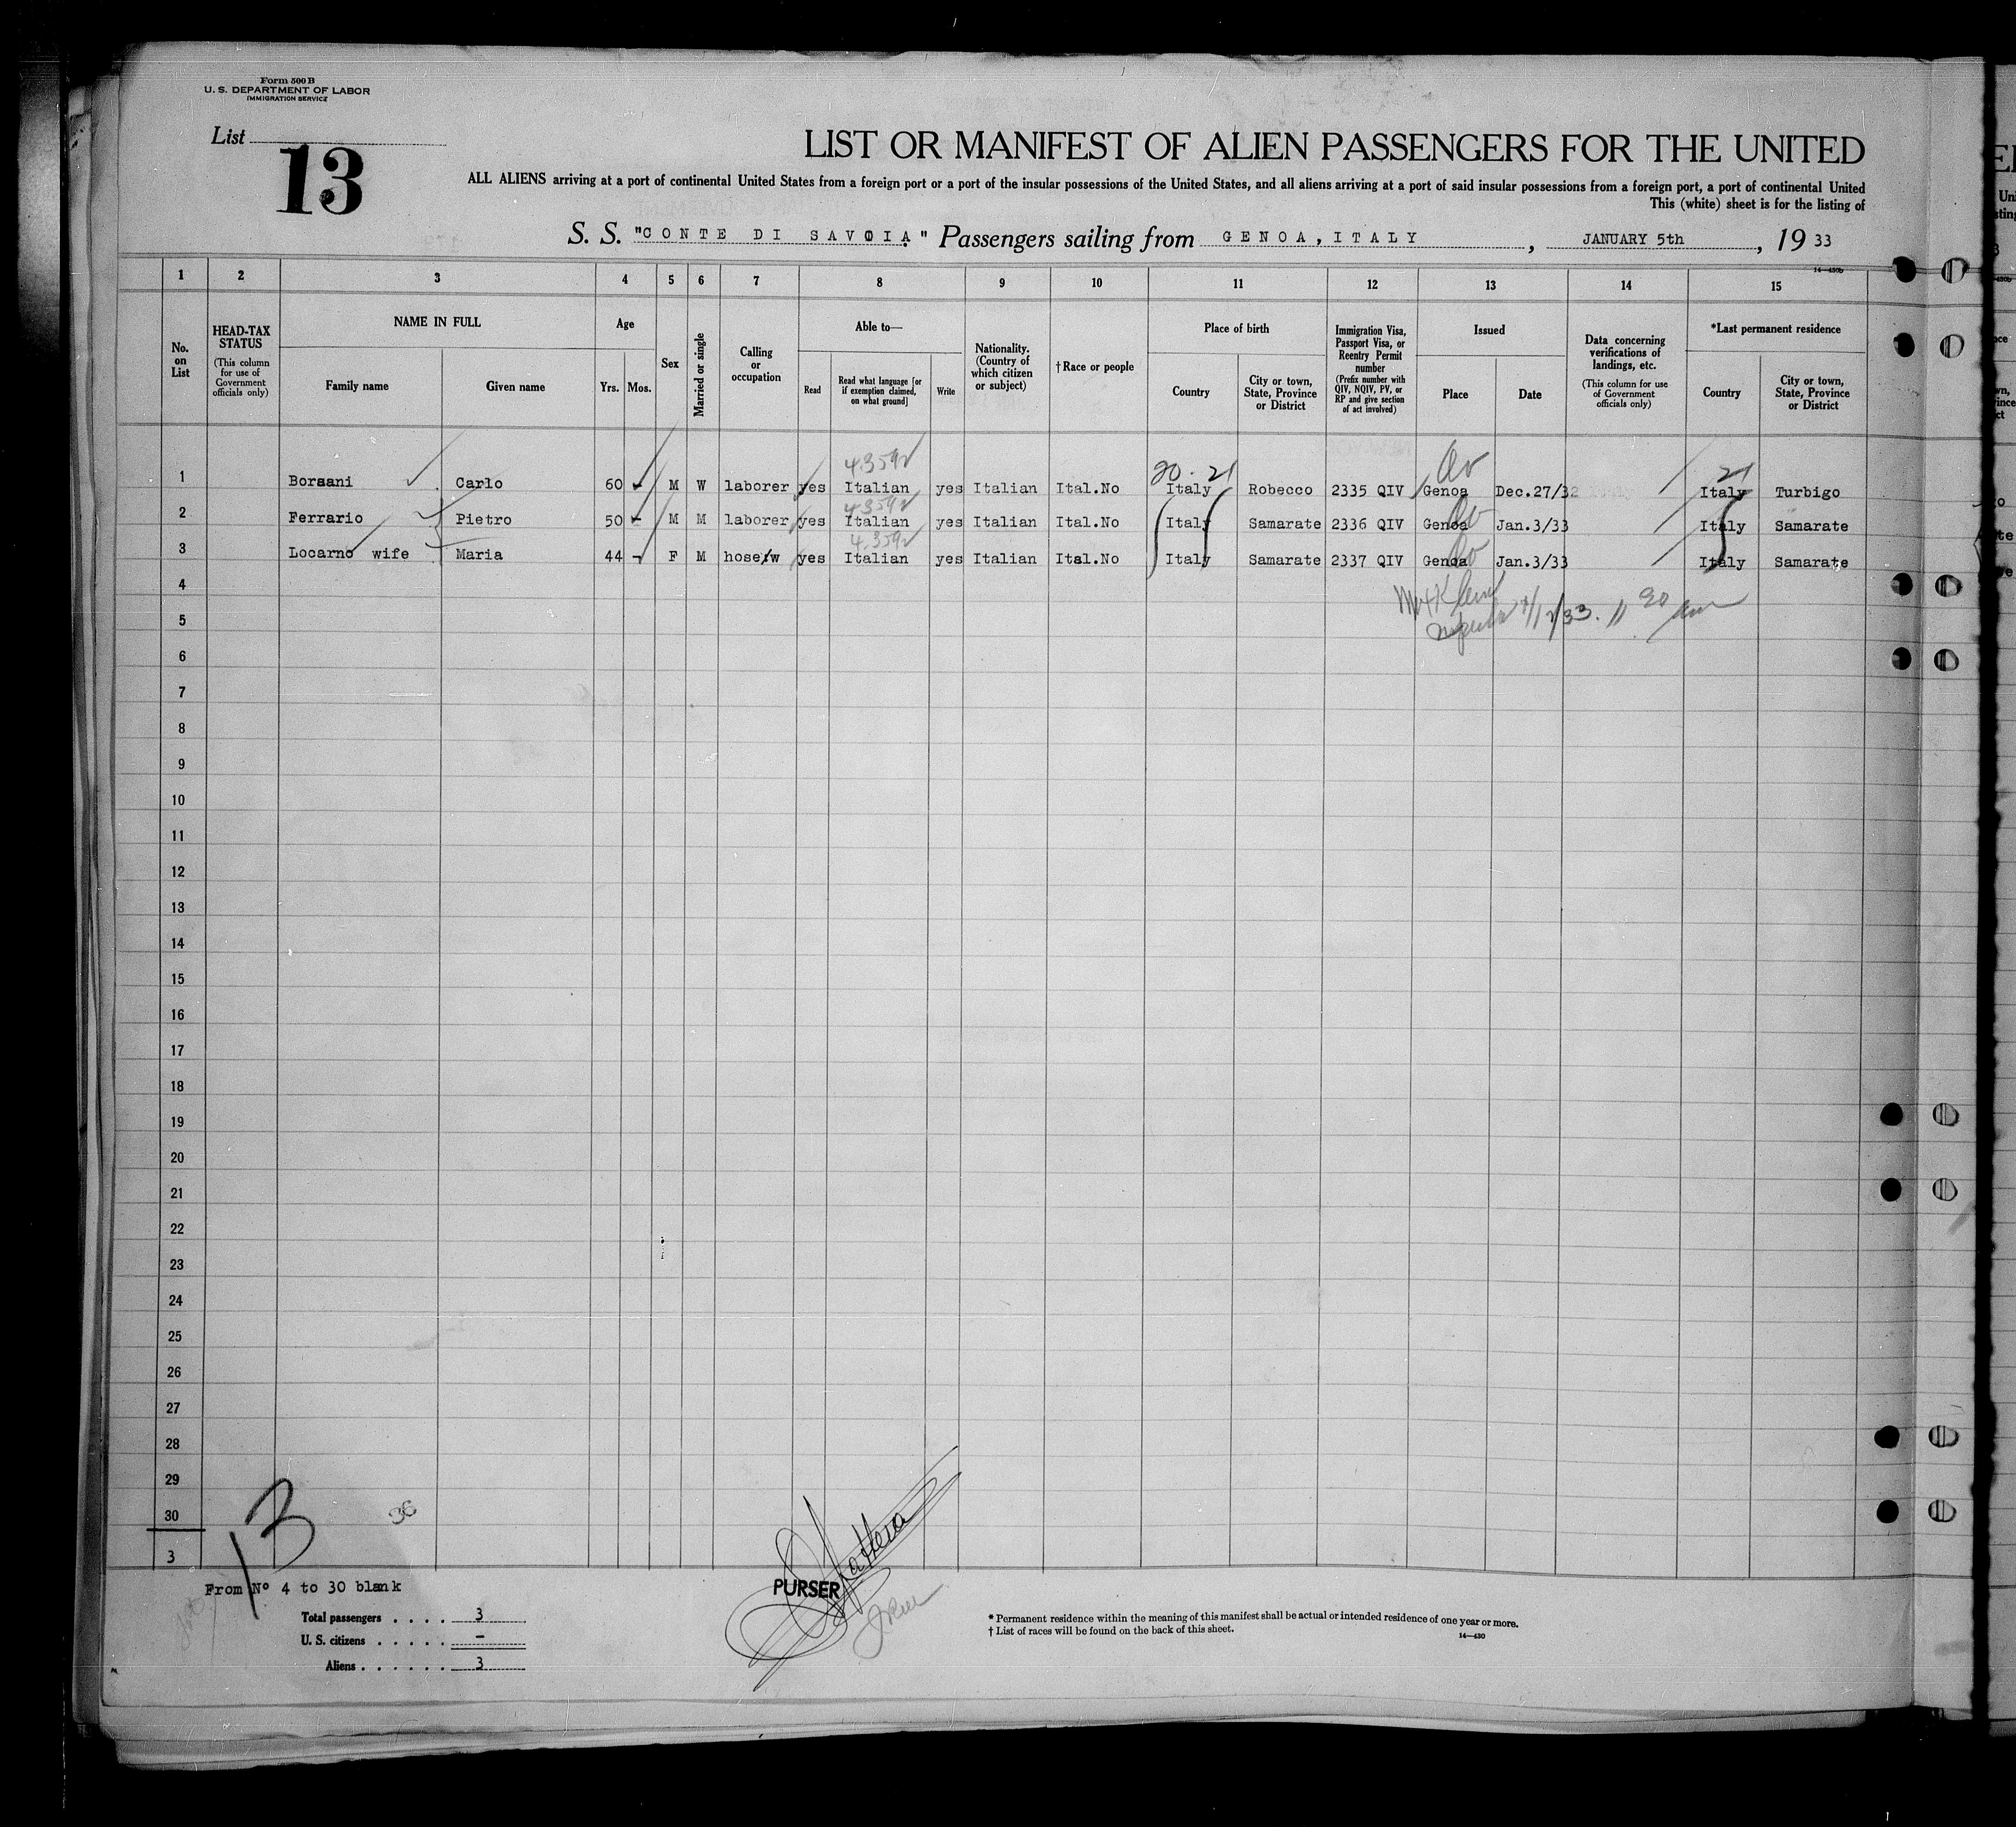 Form 500 B
U. S. DEPARTMENT OF LABOR
IMMIGRATION SERVICE
List
13
LIST OR MANIFEST OF ALIEN PASSENGERS FOR THE UNITED
ALL ALIENS arriving at a port of continental United States from a foreign port or a port of the insular possessions of the United States, and all aliens arriving at a port of said insular possessions from a foreign port, a port of continental United
This (white) sheet is for the listing of
S. S. "CONTE DI SAVOIA." Passengers sailing from GENOA, ITALY, JANUARY 5th, 19 33
14—430b
1 2 3 4 5 6 7 8 9 10 11 12 13 14 15
No. on List
HEAD-TAX STATUS
(This column for use of Government officials only)
NAME IN FULL
Family name
Given name
Age
Yrs. Mos.
Sex
Married or single
Calling or occupation
Able to—
Read
Read what language [or if exemption claimed, on what ground]
Write
Nationality. (Country of which citizen or subject)
†Race or people
Place of birth
Country
City or town, State, Province or District
Immigration Visa, Passport Visa, or Reentry Permit number
(Prefix number with QIV, NQIV, PV, or RP and give section of act involved)
Issued
Place
Date
Data concerning verifications of landings, etc.
(This column for use of Government officials only)
*Last permanent residence
Country
City or town, State, Province or District
20 - 21
21
1 Borsani Carlo 60 - M W laborer yes Italian yes Italian Ital.No Italy Robecco 2335 QIV Genoa Dec.27/32 Italy Turbigo
2 Ferrario Pietro 50 - M M laborer yes Italian yes Italian Ital.No Italy Samarate 2336 QIV Genoa Jan.3/33 Italy Samarate
3 Locarno wife Maria 44 - F M hose/w yes Italian yes Italian Ital.No Italy Samarate 2337 QIV Genoa Jan.3/33 Italy Samarate
4
5
6
7
8
9
10
11
12
13
14
15
16
17
18
19
20
21
22
23
24
25
26
27
28
29
30
3
13
36
From Nº 4 to 30 blank
Total passengers . . . . 3
U. S. citizens . . . . . –
Aliens . . . . . . 3
PURSER
* Permanent residence within the meaning of this manifest shall be actual or intended residence of one year or more.
† List of races will be found on the back of this sheet.
14—430